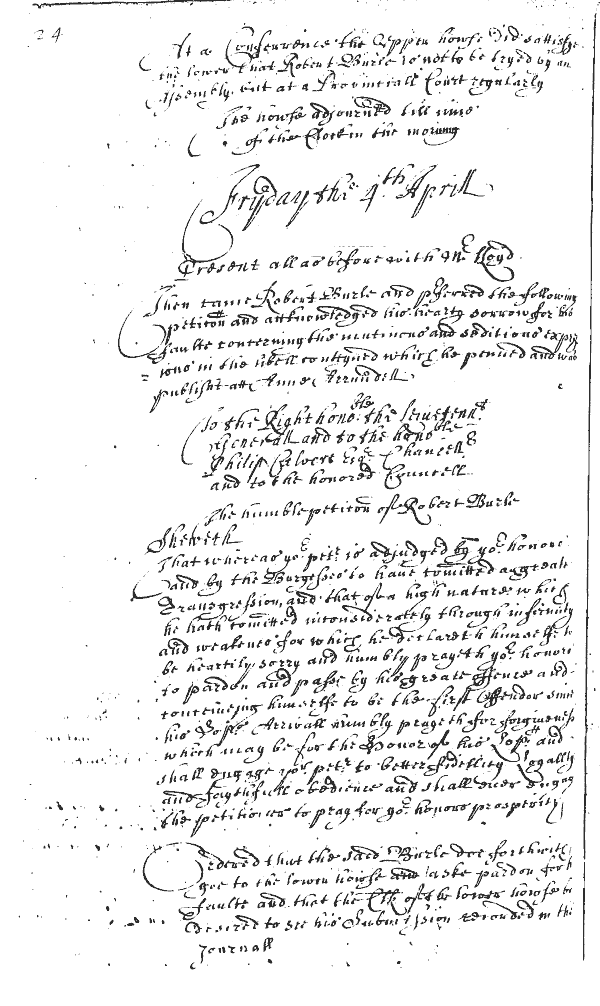 24
At a Conferrence the Upper howse did sattisfye
the lower that Robert Burle is not to be tryed by an
Assembly but at a Provinciall Court regularly
The howse adjourned till nine
of the Clock in the morning
Fryday the 4th Aprill
Present all as before with Mr Lloyd
Then came Robert Burle and pferred the following
peticon and acknowledged his hearty sorrow for his
faulte concerning the mutinous and seditious expres
ions in the libell conteyned which he penned and was
publisht att Anne Arrundell
To the Right honoble the Leiuetennt
Generall and to the honoble
Philip Calvert Esqr Chancellr
and to the honored Councell
The humble peticon of Robert Burle
Sheweth
That whereas yor petr is adjudged by yor honors
and by the Burgesses to have comitted a greate
Transgression, and that of a high nature which
he hath comitted inconsiderately through infirmity
and weaknes for which he declareth himselfe to
be heartily sorry and humbly prayeth yor honors
to pardon and passe by his greate offence and
conceiveing himselfe to be the first Offendor since
his Lopps Arrivall humbly prayeth for forgiveness
which may be for the Honor of his Lopp and
shall engage yor petr to better fidellity Loyallty
and faythfull obedience and shall ever engage
the petitioner to pray for yor honors prosperity
Ordered that the said Burle doe forthwith
goe to the lower howse aske pardon for his
faulte and that the Clk of the lower howse be
desired to see his Submission recorded in the
Journall